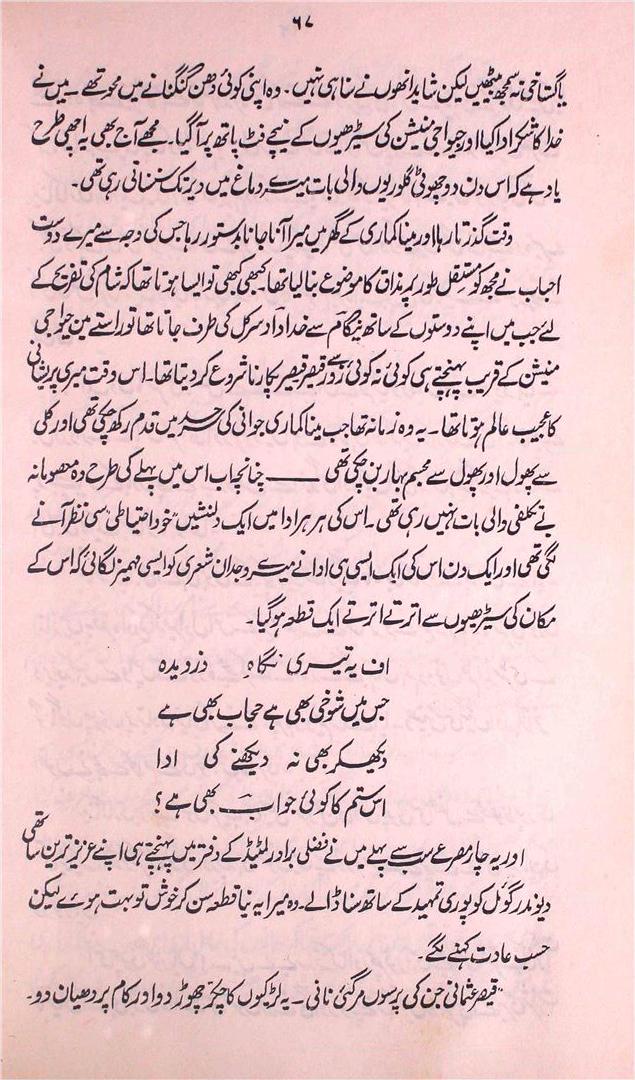 ۶۷
یا گستاخی نہ سمجھ بیٹھیں لیکن شاید انھوں نے سنا ہی نہیں۔ وہ اپنی کوئی دھن گنگنانے میں محو تھے۔ میں نے
خدا کا شکر ادا کیا اور جیواجی منیشن کی سیڑھیوں کے نیچے فٹ پاتھ پر آ گیا۔ مجھے آج بھی یہ اچھی طرح
یاد ہے کہ اس دن دو چھوٹی گلوریوں والی بات میرے دماغ میں دیر تک سنسناتی رہی تھی۔
وقت گذرتا رہا اور مینا کماری کے گھر میں میرا آنا جانا بدستور رہا جس کی وجہ سے میرے دوست
احباب نے مجھ کو مستقل طور پر مذاق کا موضوع بنا لیا تھا۔ کبھی کبھی تو ایسا ہوتا تھا کہ شام کی تفریح کے
لئے جب میں اپنے دوستوں کے ساتھ نیگام سے خداداد سرکل کی طرف جاتا تھا تو راستے میں جیواجی
منیشن کے قریب پہنچتے ہی کوئی نہ کوئی زور سے قیصر قیصر پکارنا شروع کر دیتا تھا۔ اس وقت میری پریشانی
کا عجیب عالم ہوتا تھا۔ یہ وہ زمانہ تھا جب مینا کماری جوانی کی سرحد میں قدم رکھ چکی تھی اور کلی
سے پھول اور پھول سے مجسم بہار بن چکی تھی ——— چنانچہ اب اس میں پہلے کی طرح وہ معصومانہ
بے تکلفی والی بات نہیں رہی تھی۔ اس کی ہر ہر ادا میں ایک دلنشیں "خود احتیاطی" سی نظر آنے
لگی تھی اور ایک دن اس کی ایک ایسی ہی ادا نے میرے وجدان شعری کو ایسی مہمیز لگائی کہ اس کے
مکان کی سیڑھیوں سے اترتے اترتے ایک قطعہ ہو گیا۔
اف یہ تیری نگاہِ دزدیدہ
جس میں شوخی بھی ہے حجاب بھی ہے
دیکھکر بھی نہ دیکھنے کی ادا
اس ستم کا کوئی جواب بھی ہے؟
اور یہ چار مصرعے سب سے پہلے میں نے فضلی برادر لمیٹیڈ کے دفتر میں پہنچتے ہی اپنے عزیز ترین ساتھی
دیوندر گوئل کو پوری تمہید کے ساتھ سنا ڈالے۔ وہ میرا یہ نیا قطعہ سن کر خوش تو بہت ہوے لیکن
حسب عادت کہنے لگے۔
"قیصر عثمانی جن کی پرسوں مر گئی نانی۔ یہ لڑکیوں کا چکر چھوڑ دو اور کام پر دھیان دو۔